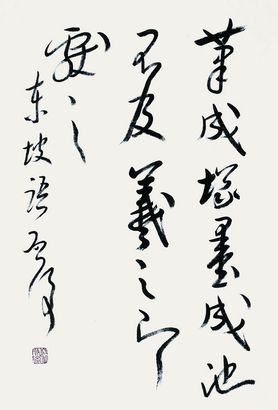 筆成塚墨成池
不及羲之即
献之
东坡语